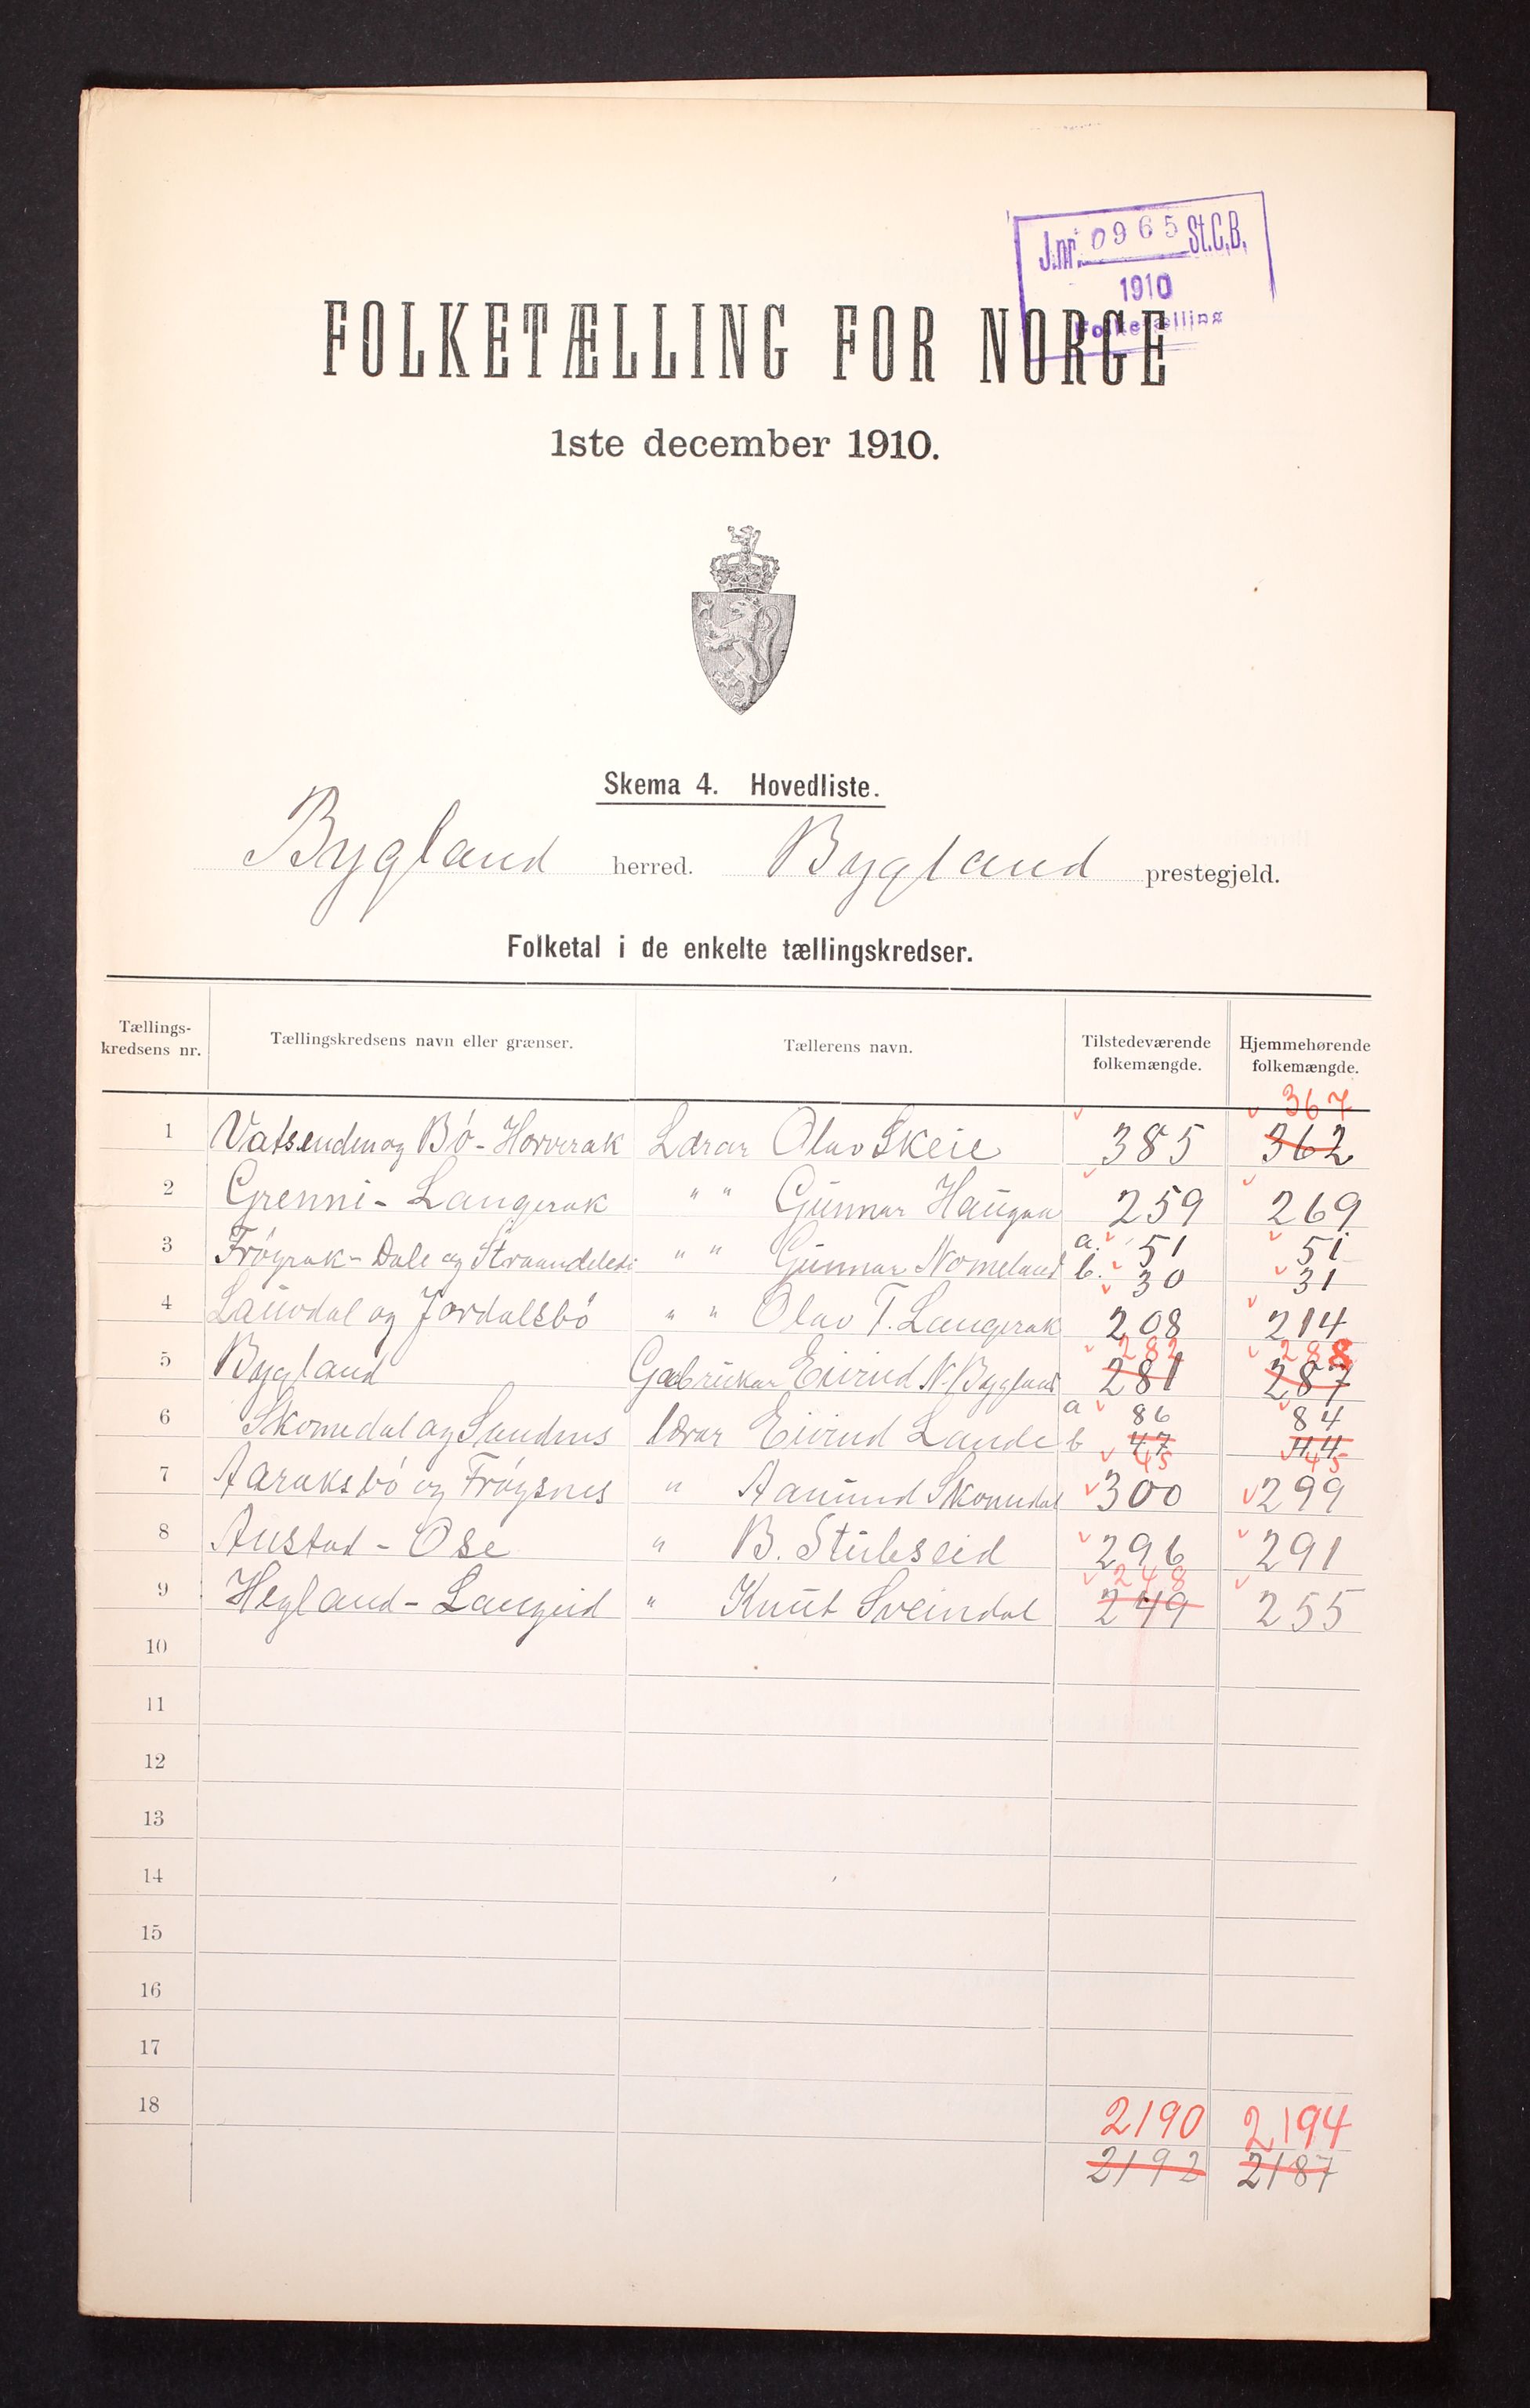 J.nr. 0965 St.C.B.
1910
Folketælling
FOLKETÆLLING FOR NORGE
1ste december 1910.
Skema 4. Hovedliste.
Bygland herred. Bygland prestegjeld.
Folketal i de enkelte tællingskredser.
Tællings-kredsens nr. Tællingskredsens navn eller grænser. Tællerens navn. Tilstedeværende folkemængde. Hjemmehørende folkemængde.
367
1 Vatsenden og Bø - Horverak Lærar Olav Skeie 385 362
2 Grenni - Langerak " " Gunnar Haugaa 259 269
3 Frøyrak - Dale og " " Gunnar Nomeland a. 51 51
b. 30 31
4 Lauvdal og Jordalsbø " " Olav T. Langerak 208 214
282 288
5 Bygland Gabrukar Eivind N. Bygland 281 287
a 86 84
6 Skomedal og Sandnes lærar Eivind Lande b 47 44
45 45
7 Aaraksbø og Frøysnes " Aanund Skomedal 300 299
8 Austad - Ose " B. Stubseid 296 291
248
9 Hegland - Langeid " Knut Sveindal 249 255
10
11
12
13
14
15
16
17
18
2190 2194
2192 2187